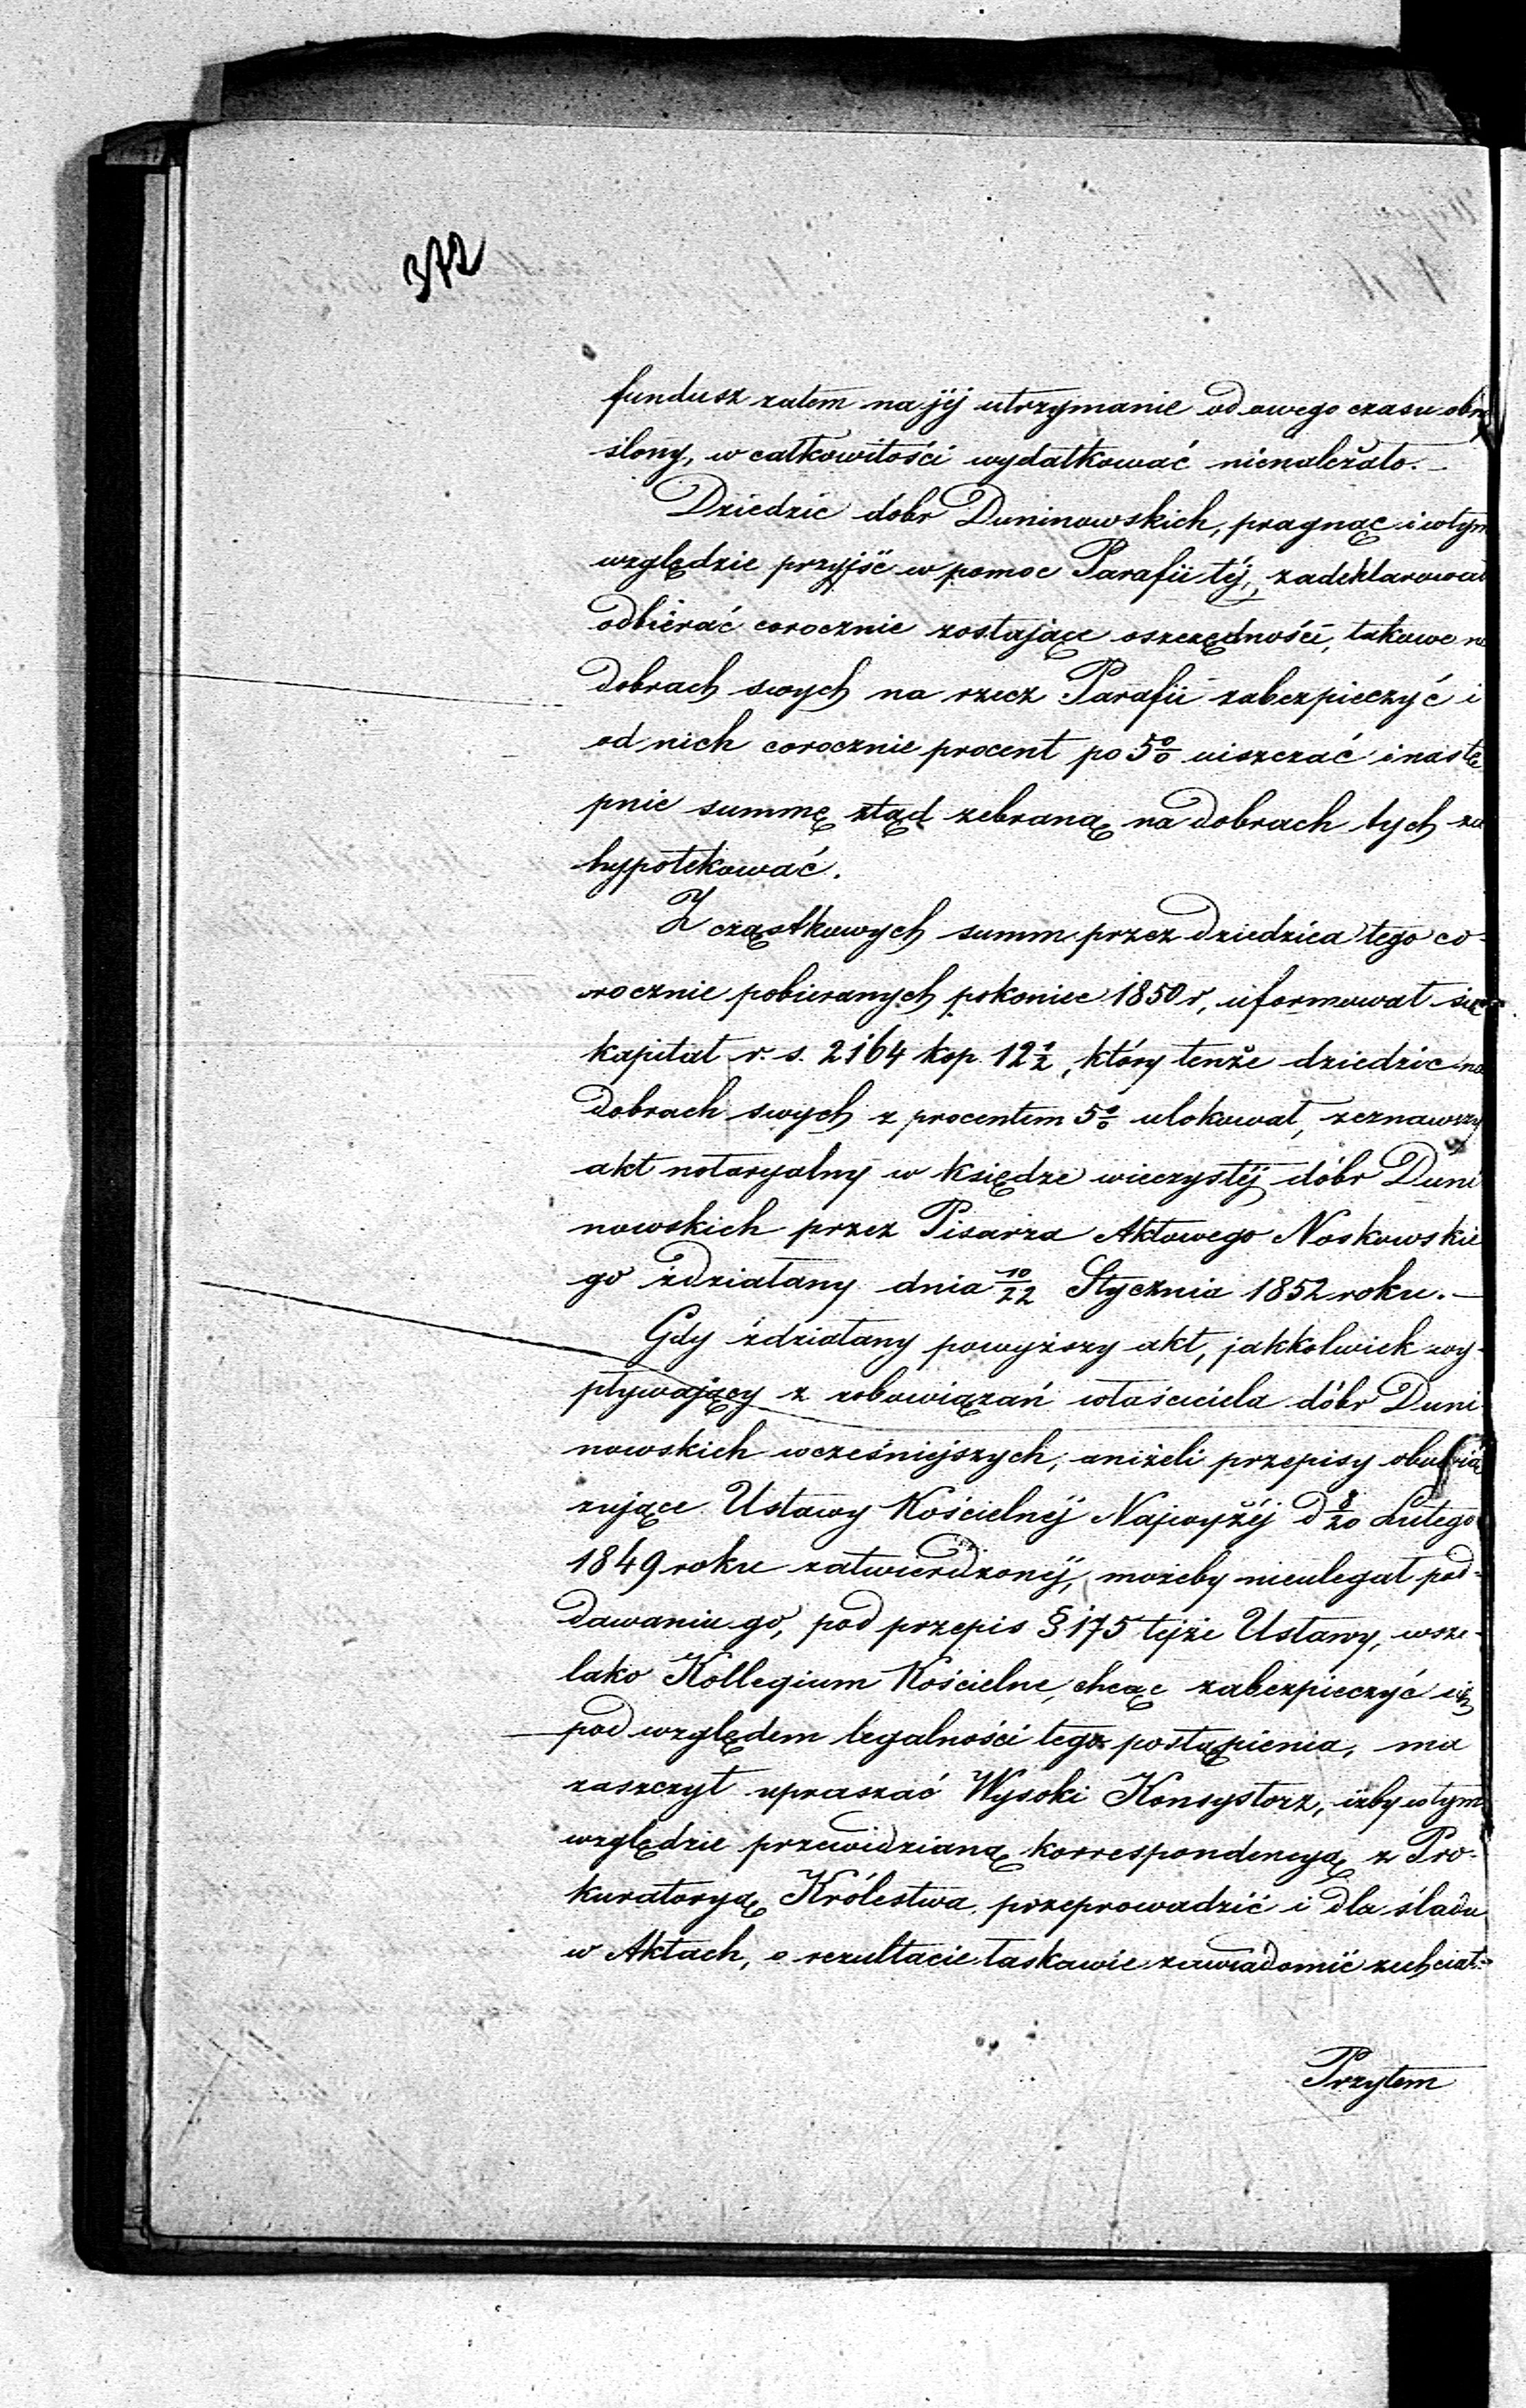 372
fundusz zatem na jéj utrzymanie od owego czasu okre
ślony, w całkowitości wydatkować nienależało.
Dziedzic dóbr Duninowskich, pragnąc i w tym
względzie przyjść w pomoc Parafii téj, zadeklarował
odbierać corocznie zostające oszczędności, takowe na
dobrach swych na rzecz Parafii zabezpieczyć i
od nich corocznie procent po 5% uiszczać i nastę
pnie summę ztąd zebraną na dobrach tych za
hypotekować.
Z cząstkowych summ przez dziedzica tego co-
rocznie pobieranych pokoniec 1850 r, uformował się
kapitał r. s. 2164 kop. 12½, który tenże dziedzic na
dobrach swych z procentem 5% ulokował, zeznawszy
akt notaryalny w księdze wieczystéj dóbr Duni
nowskich przez Pisarza Aktowego Noskowskie
go zdziałany dnia 10/22 Stycznia 1852 roku.—
Gdy zdziałany powyższy akt, jakkolwiek wy-
pływający z zobowiązań właściciela dóbr Duni-
nowskich wcześniejszych, aniżeli przepisy obowią
zujące Ustawy Kościelnéj Najwyżéj d 8/20 Lutego
1849 roku zatwierdzonéj, możeby nieulegał pod-
dawaniu go, pod przepis § 175 tejże Ustawy, wsze-
lako Kollegium Kościelne, chcąc zabezpieczyć się
pod względem legalności tego postąpienia, ma
zaszczyt upraszać Wysoki Konsystorz, iżby w tym
względzie przewidzianą korrespondencyą z Pro-
kuratoryą Królestwa, przeprowadzić i dla śladu
w Aktach, o rezultacie łaskawie zawiadomić zechciał.=
Przytem